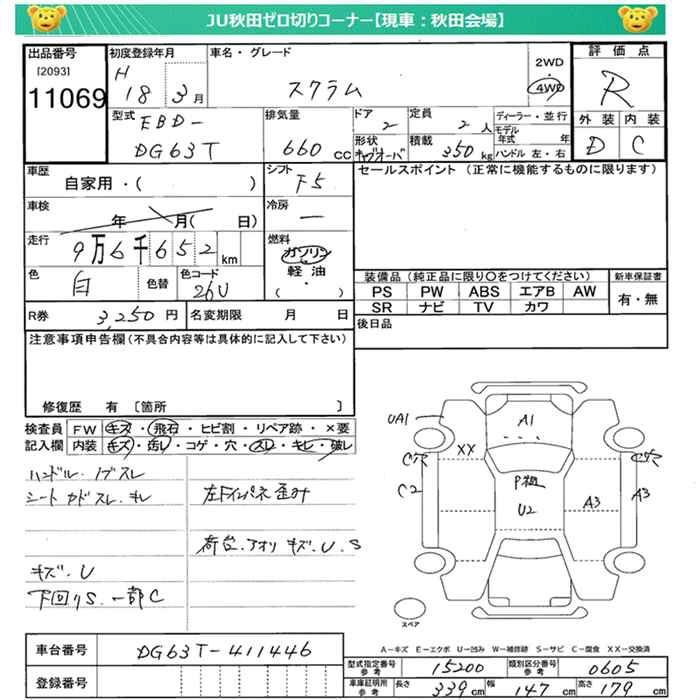 JU秋田ゼロ切りコーナー【現車：秋田会場】
出品番号
[2093]
11069
初度登録年月
H
18 3月
車名・グレード
スクラム
2WD
・
4WD
評価点
R
外装 内装
D C
型式
EBD-
DG63T
排気量
660 CC
ドア
2
形状
キャブオーバ
定員
2人
積載
350 kg
ディーラー・並行
モデル年式 年
ハンドル 左・右
車歴
自家用・( )
シフト
F5
セールスポイント (正常に機能するものに限ります)
車検
年 月( 日)
冷房
—
走行
9万6千652km
燃料
ガソリン
軽油
( ・ )
色
白
色替
色コード
26U
装備品（純正品に限り〇をつけてください）
新車保証書
PS PW ABS エアB AW
SR ナビ TV カワ
有・無
R券 3,250円
名変期限 月 日
後日品
注意事項申告欄(不具合内容等は具体的に記入して下さい)
修復歴 有 〔箇所 〕
検査員 FW キズ・飛石・ヒビ割・リペア跡・×要
記入欄 内装 キズ・汚レ・コゲ・穴・スレ・キレ・破レ
ハンドル・ノブスレ
シート カドスレ・キレ
左Fインパネ歪み
荷台・アオリ キズ・U・S
キズ・U
下回りS・一部C
UA1
A1
XX
C穴
C穴
C2
P極
U2
A3
A3
スペア
A－キズ E－エクボ U－凹み W－補修跡 S－サビ C－腐食 XX－交換済
車台番号 DG63T-411446
登録番号
型式指定番号
参考
15200
類別区分番号
参考
0605
車庫証明用
参考
長さ 339cm 幅 147cm 高さ 179cm